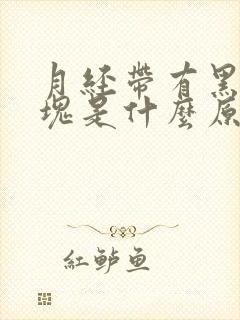 月経帶有黑
塊是什麼原
紅鲈鱼